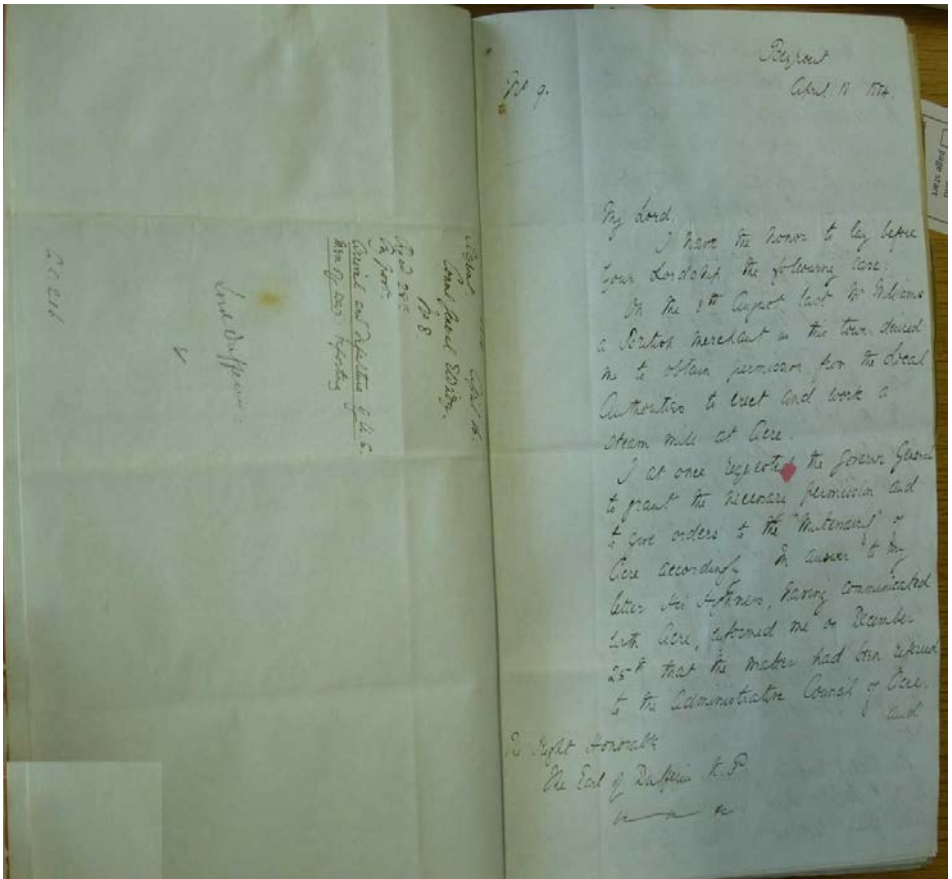 Beyrout
No 9.
April 18 1884.
My Lord,
I have the honor to lay before
Your Lordship the following case:
On the 8th August last Mr Williams
a British merchant in this town desired
me to obtain permission from the Local
Authorities to erect and work a
steam mill at Acre.
I at once requested the Governor General
to grant the necessary permission and
to give orders to the "Mutessarif" of
Acre accordingly. In answer to my
letter His Highness, having communicated
with Acre, informed me on December
25th that the matter had been referred
to the Administrative Council of Acre.
and
The Right Honorable
The Earl of Dufferin K.P.
April
Consul General
No 8
Arrival and departure of H.M.S.
Men of War reporting
Lord Dufferin